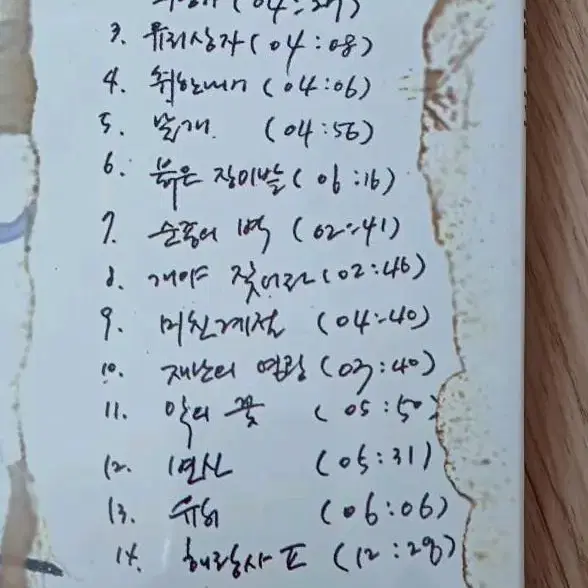 (04:27)
3. 유리상자 (04:08)
4. (04:06)
5. 날개 (04:56)
6. 붉은 장미밭 (06:16)
7. 순종의 벽 (02:41)
8. 개야 짖어라 (02:46)
9. 미친계절 (04:40)
10. 재난의 영광 (03:40)
11. 악의 꽃 (05:50)
12. 연산 (05:31)
13. 유희 (06:06)
14. 해랑사 E (12:28)